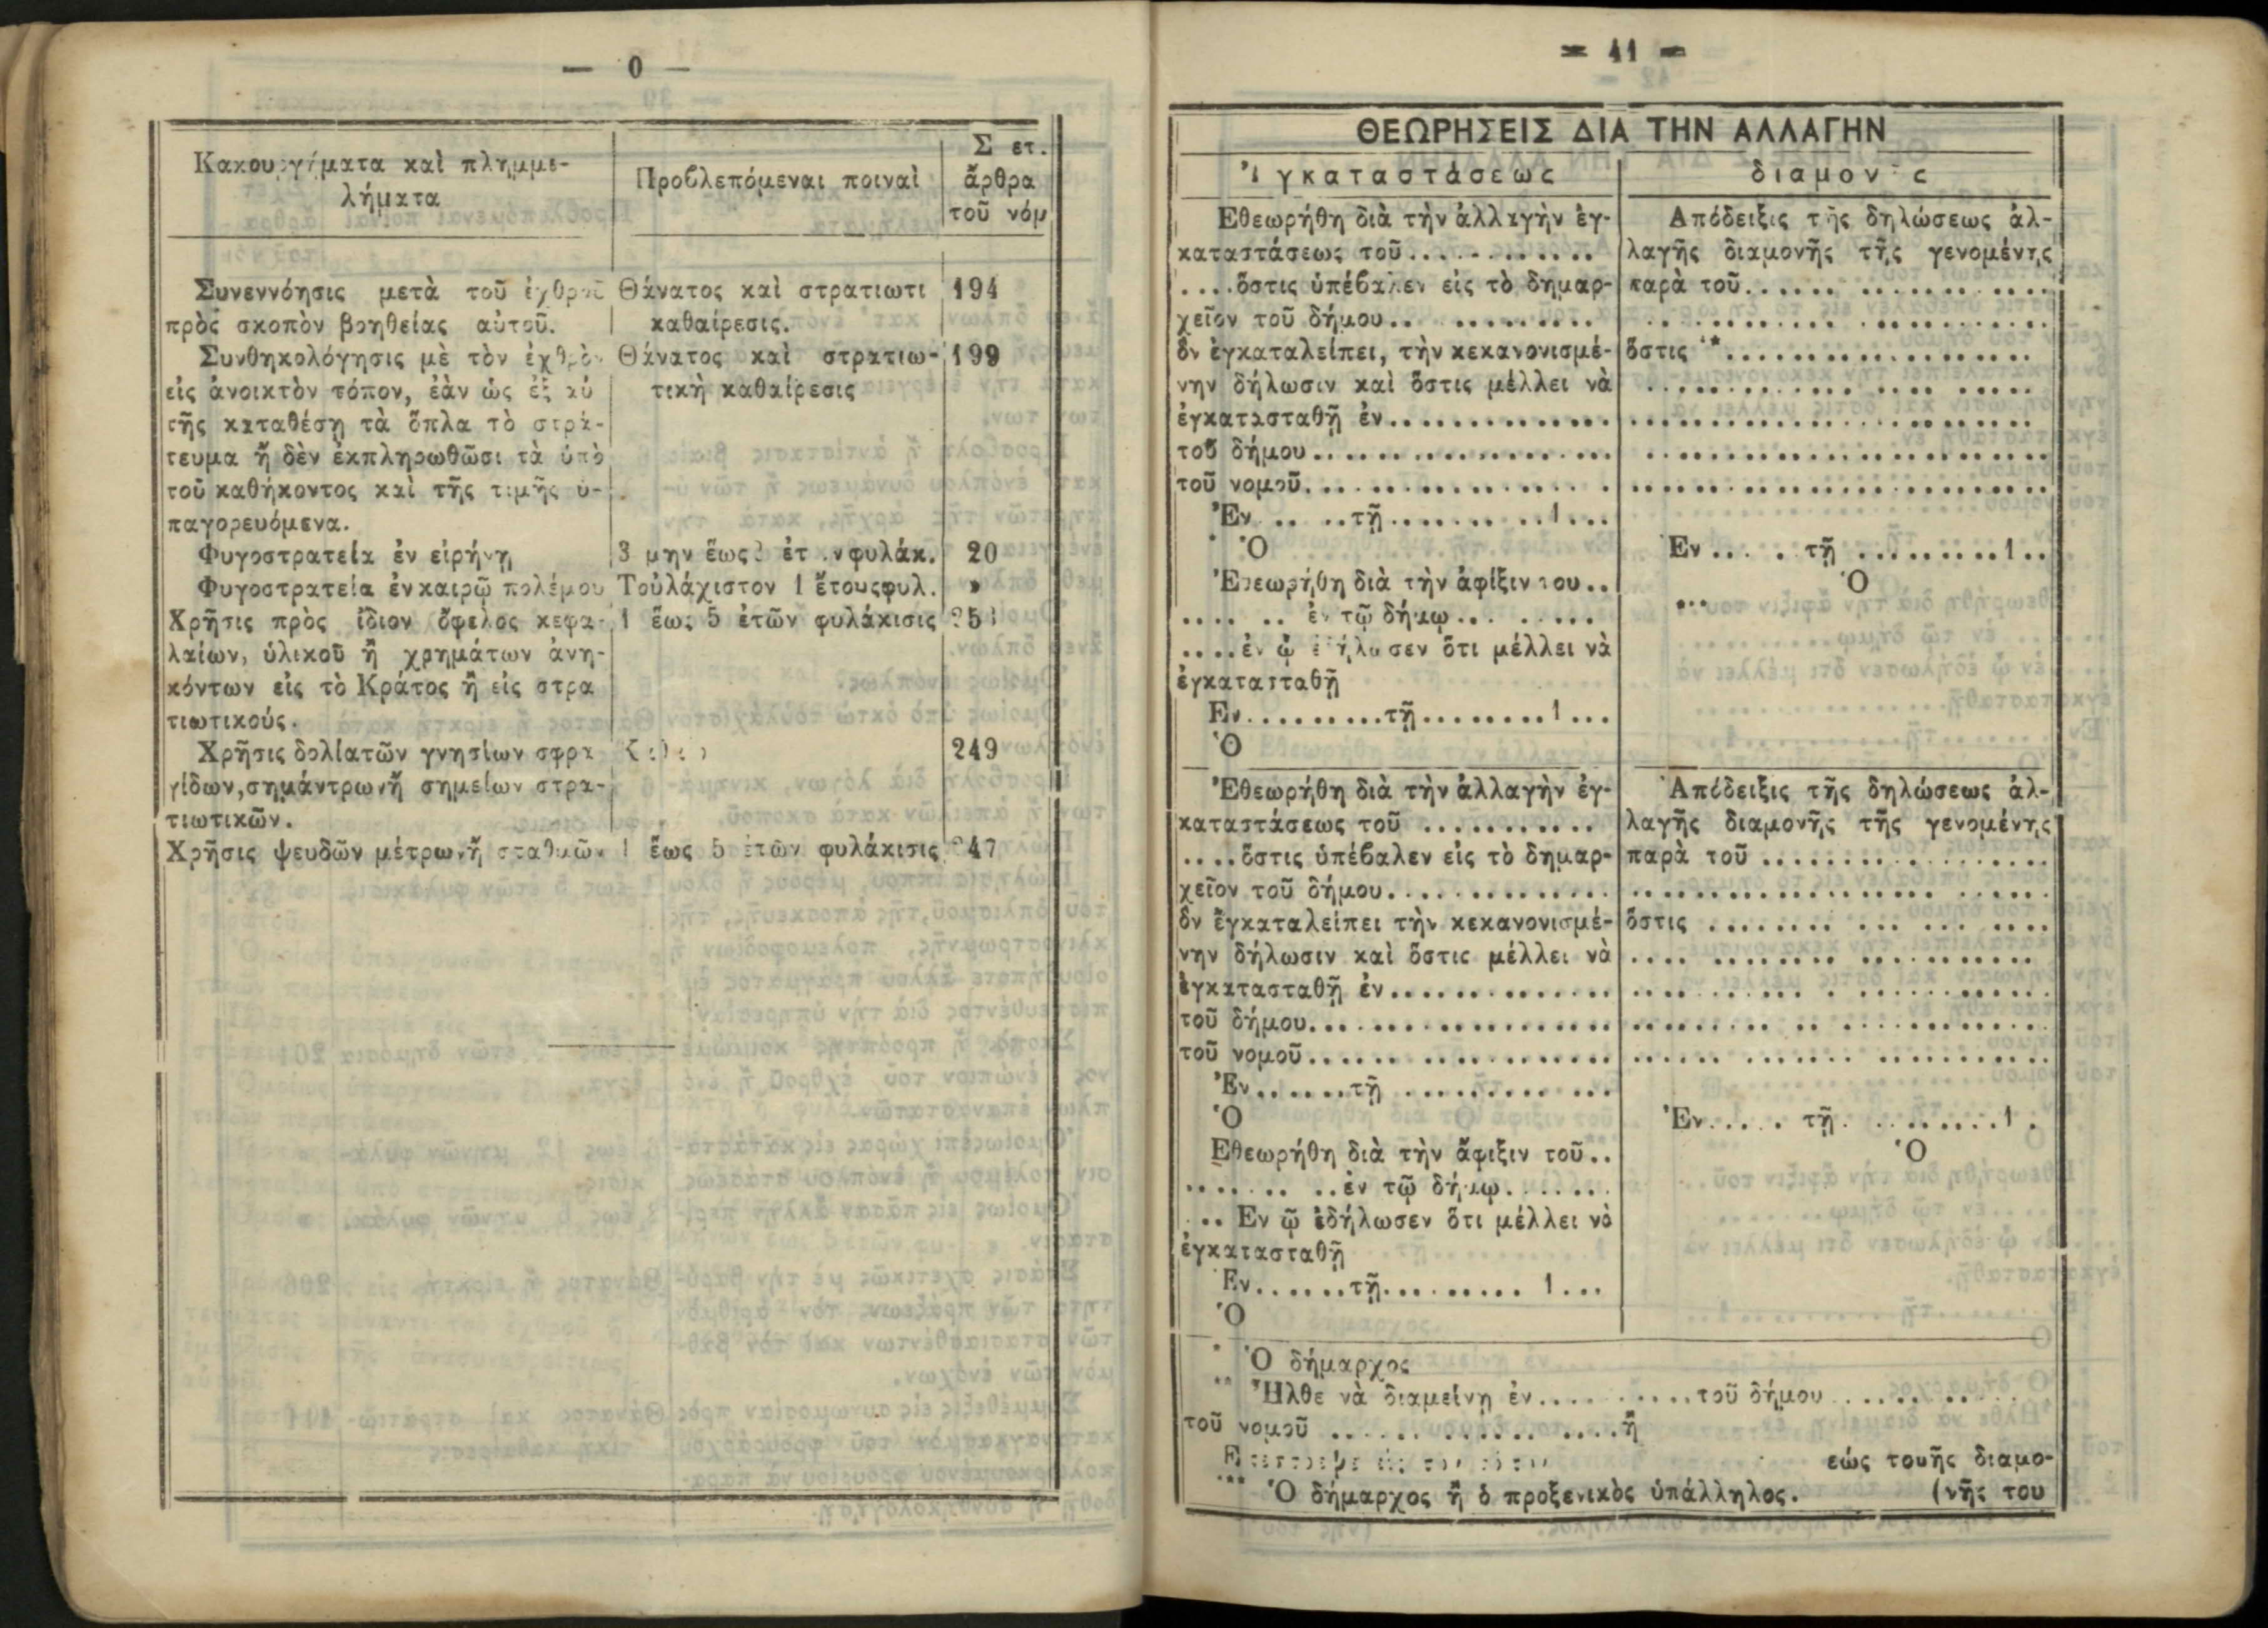 — 0 —
Κακουργήματα καὶ πλημμε-
λήματα
Προβλεπόμεναι ποιναὶ
Σ ετ.
ἄρθρα
τοῦ νόμ
Συνεννόησις μετὰ τοῦ ἐχθροῦ Θάνατος καὶ στρατιωτι 194
πρὸς σκοπὸν βοηθείας αὐτοῦ. καθαίρεσις.
Συνθηκολόγησις μὲ τὸν ἐχθρὸν Θάνατος καὶ στρατιω- 199
εἰς ἀνοικτὸν τόπον, ἐὰν ὡς ἐξ αὐ τικὴ καθαίρεσις
τῆς καταθέσῃ τὰ ὅπλα τὸ στρά-
τευμα ἢ δὲν ἐκπληρωθῶσι τὰ ὑπὸ
τοῦ καθήκοντος καὶ τῆς τιμῆς ὑ-
παγορευόμενα.
Φυγοστρατεία ἐν εἰρήνῃ 3 μην ἕως ἐτ νφυλάκ. 20
Φυγοστρατεία ἐν καιρῷ πολέμου Τοὐλάχιστον 1 ἔτουςφυλ. »
Χρῆσις πρὸς ἴδιον ὄφελος κεφα- 1 ἕως 5 ἐτῶν φυλάκισις
λαίων, ὑλικοῦ ἢ χρημάτων ἀνη-
κόντων εἰς τὸ Κράτος ἢ εἰς στρα
τιωτικούς.
Χρῆσις δολίατῶν γνησίων σφρα 249
γίδων,σημάντρωνἢ σημείων στρα-
τιωτικῶν.
Χρῆσις ψευδῶν μέτρωνἢ σταθμῶν 1 ἕως 5 ἐτῶν φυλάκισις 247
= 41 =
ΘΕΩΡΗΣΕΙΣ ΔΙΑ ΤΗΝ ΑΛΛΑΓΗΝ
γκαταστάσεως
Εθεωρήθη διὰ τὴν ἀλλαγὴν ἐγ-
καταστάσεως τοῦ............
....ὅστις ὑπέβαλεν εἰς τὸ δημαρ-
χεῖον τοῦ δήμου.. .........
ὃν ἐγκαταλείπει, τὴν κεκανονισμέ-
νην δήλωσιν καὶ ὅστις μέλλει νὰ
ἐγκατασταθῇ ἐν.............
τοῦ δήμου..................
τοῦ νομοῦ..................
Ἐν .. ..τῇ.........1...
* Ὁ
Ἐθεωρήθη διὰ τὴν ἀφίξιν του..
.... .. ἐν τῷ δήμῳ... ......
....ἐν ᾧ ἐδήλωσεν ὅτι μέλλει νὰ
ἐγκατασταθῇ
Εν.........τῇ........1...
Ὁ
Ἐθεωρήθη διὰ τὴν ἀλλαγὴν ἐγ-
καταστάσεως τοῦ ...........
....ὅστις ὑπέβαλεν εἰς τὸ δημαρ-
χεῖον τοῦ δήμου..............
ὃν ἐγκαταλείπει τὴν κεκανονισμέ-
νην δήλωσιν καὶ ὅστις μέλλει νὰ
ἐγκατασταθῇ ἐν..............
τοῦ δήμου..................
τοῦ νομοῦ...... ...........
Ἐν......τῇ .............
Ὁ
Εθεωρήθη διὰ τὴν ἄφιξιν τοῦ..
....... ..ἐν τῷ δήμῳ.......
... Εν ᾧ ἐδήλωσεν ὅτι μέλλει νὰ
ἐγκατασταθῇ
Ἐν......τῇ......... 1...
Ὁ
διαμον ς
Απόδειξις τῆς δηλώσεως ἀλ-
λαγῆς διαμονῆς τῆς γενομένης
παρὰ τοῦ...... ............
......................
ὅστις **..................
................. .....
......................
......................
......................
Ἐν.... . τῇ .........1..
Ὁ
***
Ἀπόδειξις τῆς δηλώσεως ἀλ-
λαγῆς διαμονῆς τῆς γενομένης
παρὰ τοῦ .................
......................
ὅστις ........ ... ... ....
.... ........ ...........
.......... . ............
......... .. .............
...... ....... ...........
Ἐν..... . τῇ. ........1 .
Ὁ
* Ὁ δήμαρχος
** Ἦλθε νὰ διαμείνῃ ἐν.... .....τοῦ δήμου ...........
τοῦ νομοῦ .................ἢ
εώς τουῆς διαμο-
*** Ὁ δήμαρχος ἢ ὁ προξενικὸς ὑπάλληλος. (νῆς του